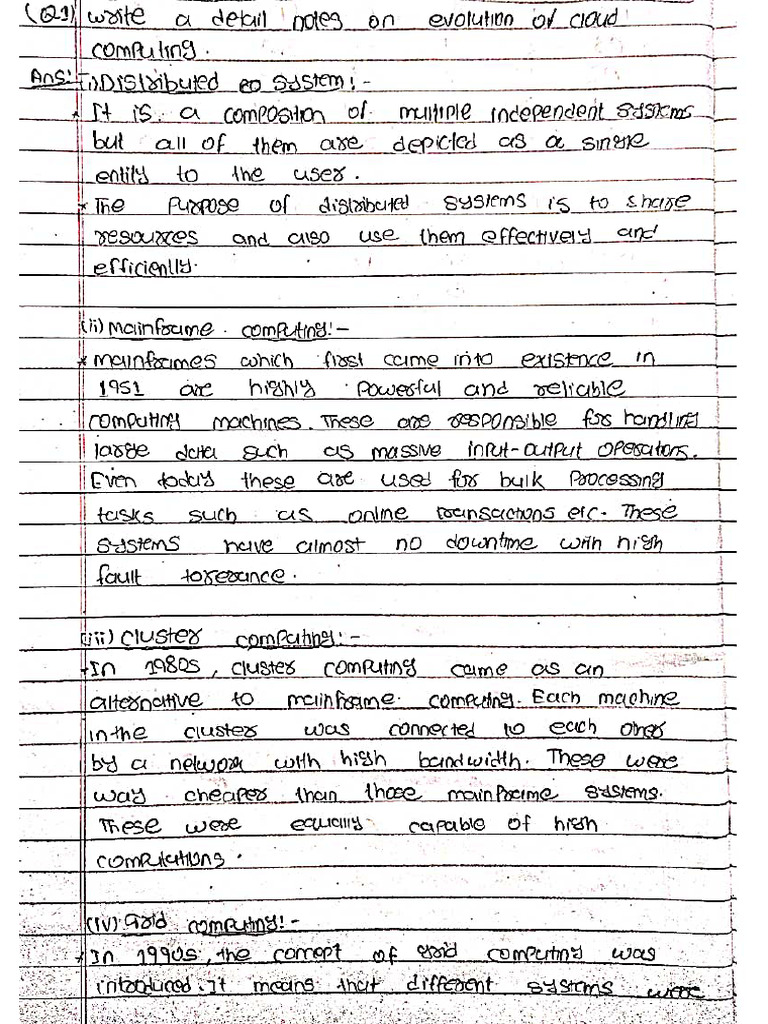 (Q1) write a detail notes on evolution of cloud
computing.
Ans:- (i) Distributed system:-
* It is a composition of multiple independent systems
but all of them are depicted as a single
entity to the user.
* The purpose of distributed systems is to share
resources and also use them effectively and
efficiently.
(ii) Mainframe computing:-
* mainframes which first came into existence in
1951 are highly powerful and reliable
computing machines. These are responsible for handling
large data such as massive input-output operations.
Even today these are used for bulk processing
tasks such as online transactions etc. These
systems have almost no downtime with high
fault tolerance.
(iii) cluster computing:-
* In 1980s, cluster computing came as an
alternative to mainframe computing. Each machine
in the cluster was connected to each other
by a network with high bandwidth. These were
way cheaper than those mainframe systems.
These were equally capable of high
computations.
(iv) Grid computing:-
* In 1990s, the concept of grid computing was
introduced. It means that different systems were